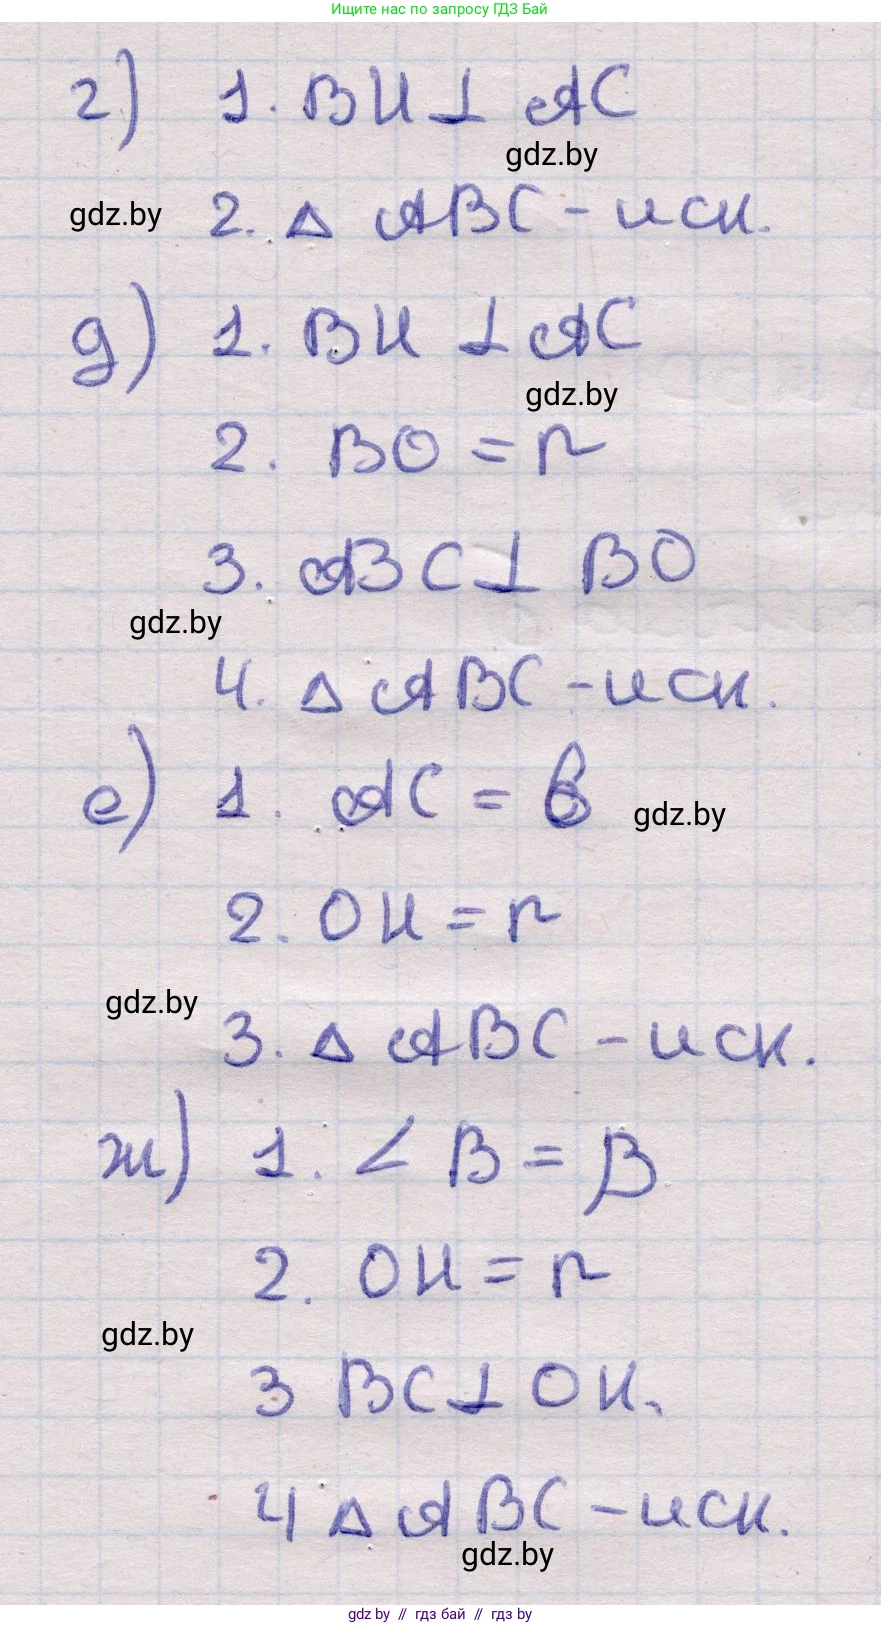 Ищите нас по запросу ГДЗ Бай
г) 1. BH ⊥ AC
gdz.by
gdz.by
2. △ ABC - иск.
д) 1. BH ⊥ AC
gdz.by
2. BO = r
3. ABC ⊥ BO
gdz.by
4. △ ABC - иск.
е) 1. AC = b
gdz.by
2. OH = r
gdz.by
3. △ ABC - иск.
ж) 1. ∠ B = β
2. OH = r
gdz.by
3 BC ⊥ OH.
4 △ ABC - иск.
gdz.by
gdz by // гдз бай // gdz by